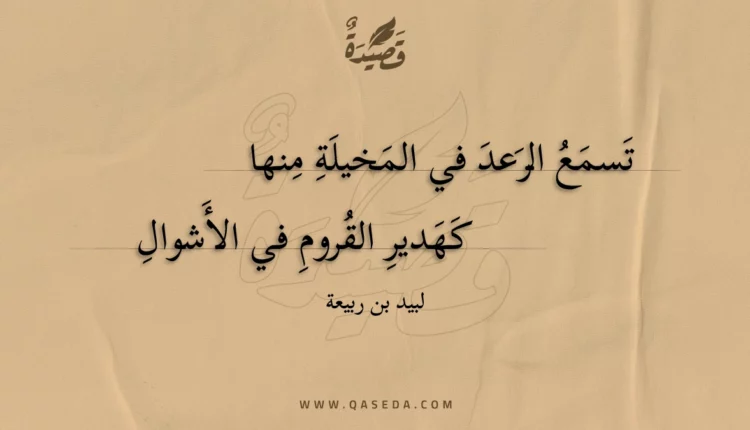 قَصِيْدَةٌ
تَسمَعُ الرَعدَ في المَخيلَةِ مِنها
كَهَديرِ القُرومِ في الأَشوالِ
لبيد بن ربيعة
WWW.QASEDA.COM